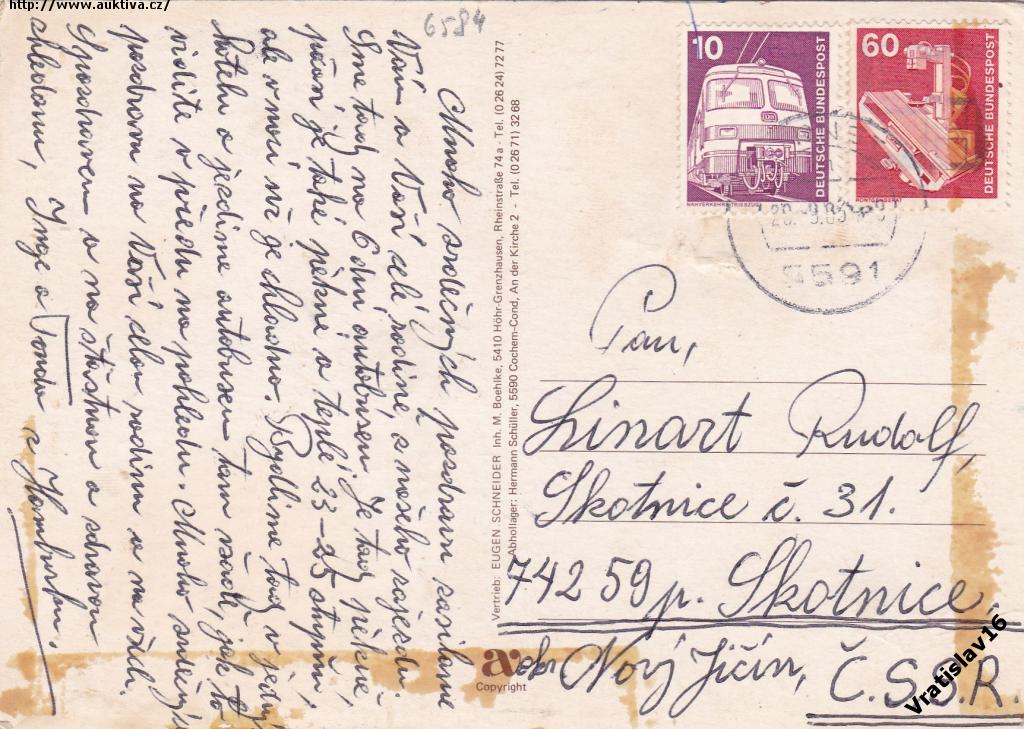 http://www.auktiva.cz/
6584
Mnoho srdečných pozdravu zasílame
Vám a Vaší celé rodině z našeho zájezdu.
Sme tady na 6 dnu autobusem. Je tady pěkně,
počasí je také pěkné a teplé 23-25 stupnu,
ale v noci už je chladno. Bydlíme tady v jednym
hotelu a jezdíme autobusem tam sem, jak to
vidíte v předu na pohledu. Mnoho srdečnych
pozdravu na Vaší celou rodinu a na
Spozdravem a na šťastnou a zdravou
shledanou, Inge a Tonda z Hamburku.
Vertrieb: EUGEN SCHNEIDER Inh. M. Boehlke, 5410 Höhr-Grenzhausen, Rheinstraße 74a - Tel. (0 26 24) 72 77
Abhollager: Hermann Schüller, 5590 Cochem-Cond, An der Kirche 2 - Tel. (0 26 71) 32 68
10
DEUTSCHE BUNDESPOST
NAHVERKEHRSTRIEBZUG
60
DEUTSCHE BUNDESPOST
RÖNTGENGERÄT
5591
Pan,
Linart Rudolf,
Skotnice č. 31.
742 59 p. Skotnice
okr Nový Jičín, Č.S.S.R.
Copyright
Vratislav16